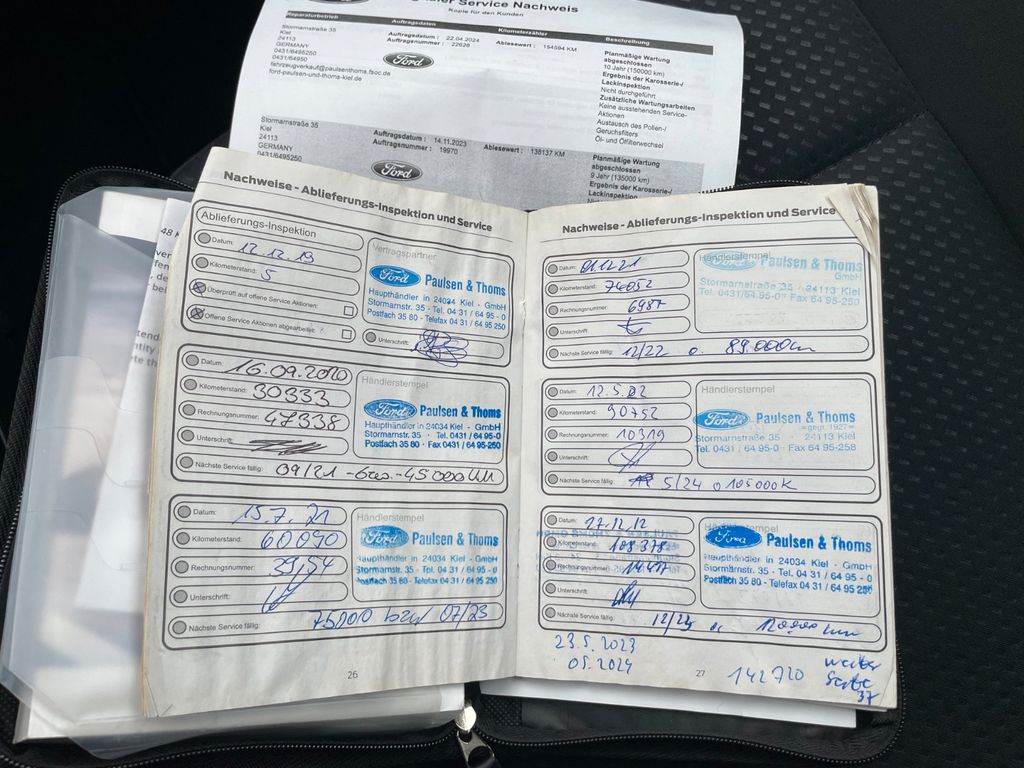 Service Nachweis
Kopie für den Kunden
Reparaturbetrieb Auftragsdaten Kilometerzähler Beschreibung
Stormarnstraße 35
Kiel
24113
GERMANY
0431/6495250
0431/64950
fahrzeugverkauf@paulsenthoms.fsoc.de
ford-paulsen-und-thoms-kiel.de
Auftragsdatum : 22.04.2024
Auftragsnummer : 22628
Ablesewert : 154594 KM
Ford
Planmäßige Wartung
abgeschlossen
10 Jahr (150000 km)
Ergebnis der Karosserie-/
Lackinspektion
Nicht durchgeführt
Zusätzliche Wartungsarbeiten
Keine ausstehenden Service-
Aktionen
Austausch des Pollen-/
Geruchsfilters
Öl- und Ölfilterwechsel
Stormarnstraße 35
Kiel
24113
GERMANY
0431/6495250
Auftragsdatum : 14.11.2023
Auftragsnummer : 19970
Ablesewert : 138137 KM
Ford
Planmäßige Wartung
abgeschlossen
9 Jahr (135000 km)
Ergebnis der Karosserie-/
Lackinspektion
Nachweise - Ablieferungs-Inspektion und Service
Ablieferungs-Inspektion
Datum: 12.12.19
Kilometerstand: 5
Überprüft auf offene Service Aktionen:
Offene Service Aktionen abgearbeitet:
Vertragspartner
Ford Paulsen & Thoms
Haupthändler in 24034 Kiel - GmbH
Stormarnstr. 35 - Tel. 04 31 / 64 95 - 0
Postfach 35 80 - Telefax 04 31 / 64 95 250
Unterschrift:
Datum: 16.09.2020
Kilometerstand: 30333
Rechnungsnummer: 47338
Unterschrift:
Händlerstempel
Ford Paulsen & Thoms
Haupthändler in 24034 Kiel - GmbH
Stormarnstr. 35 - Tel. 0431 / 64 95-0
Postfach 35 80 - Fax 0431 / 64 95-250
Nächste Service fällig: 09/21 - 45000 km
Datum: 15.7.21
Kilometerstand: 60040
Rechnungsnummer: 3954
Unterschrift:
Händlerstempel
Ford Paulsen & Thoms
Haupthändler in 24034 Kiel - GmbH
Stormarnstr. 35 - Tel. 04 31 / 64 95 - 0
Postfach 35 80 - Telefax 04 31 / 64 95 250
Nächste Service fällig: 75000 bzw 07/23
26
Nachweise - Ablieferungs-Inspektion und Service
Datum: 01.12.21
Kilometerstand: 74052
Rechnungsnummer: 6987
Unterschrift:
Händlerstempel
Ford Paulsen & Thoms
GmbH
Stormarnstraße 35 - 24113 Kiel
Tel. 0431/64 95-0 Fax 64 95-250
Nächste Service fällig: 12/22 o. 89.000km
Datum: 12.5.02
Kilometerstand: 90752
Rechnungsnummer: 10319
Unterschrift:
Händlerstempel
Ford Paulsen & Thoms
gegr. 1927
Stormarnstraße 35 · 24113 Kiel
Tel. 0431 / 64 95-0 · Fax 64 95-258
Nächste Service fällig: 5/24 o 105000K
Datum: 17.12.12
Kilometerstand: 108.378
Rechnungsnummer: 14417
Unterschrift:
Händlerstempel
Ford Paulsen & Thoms
Haupthändler in 24034 Kiel - GmbH
Stormarnstr. 35 - Tel. 04 31 / 64 95 - 0
Postfach 35 80 - Telefax 04 31 / 64 95 250
Nächste Service fällig: 12/24
23.5.2023
05.2024
27
142720
weiter
Seite
37